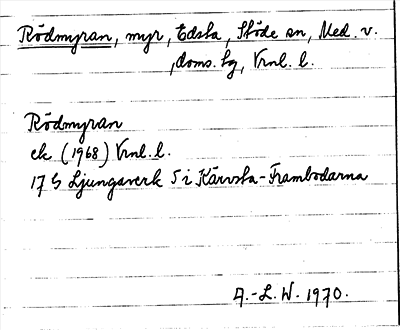 Rödmyran, myr, Edsta, Stöde sn, Med. v.
,doms. sg, Vrnl. l.
Rödmyran
ek (1968) Vrnl. l.
17 G Ljungaverk 5 i Kärvsta-Frambodarna
A.-L. W. 1970.